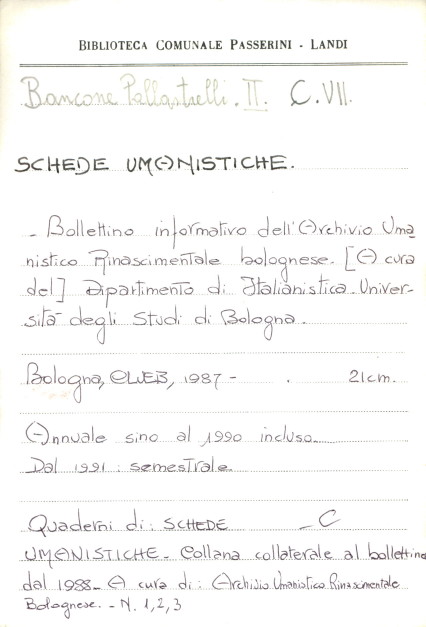 BIBLIOTECA COMUNALE PASSERINI - LANDI
Bancone Pallastrelli. II. C. VII.
SCHEDE UMANISTICHE.
- Bollettino informativo dell'Archivio Uma
nistico Rinascimentale bolognese. [A cura
del] Dipartimento di Italianistica. Univer-
sità degli Studi di Bologna.
Bologna, CLUEB, 1987 - . 21 cm.
Annuale sino al 1990 incluso.
Dal 1991: semestrale
Quaderni di: SCHEDE - C
UMANISTICHE - Collana collaterale al bollettino
dal 1988 - A cura di: Archivio Umanistico Rinascimentale
Bolognese. - N. 1, 2, 3